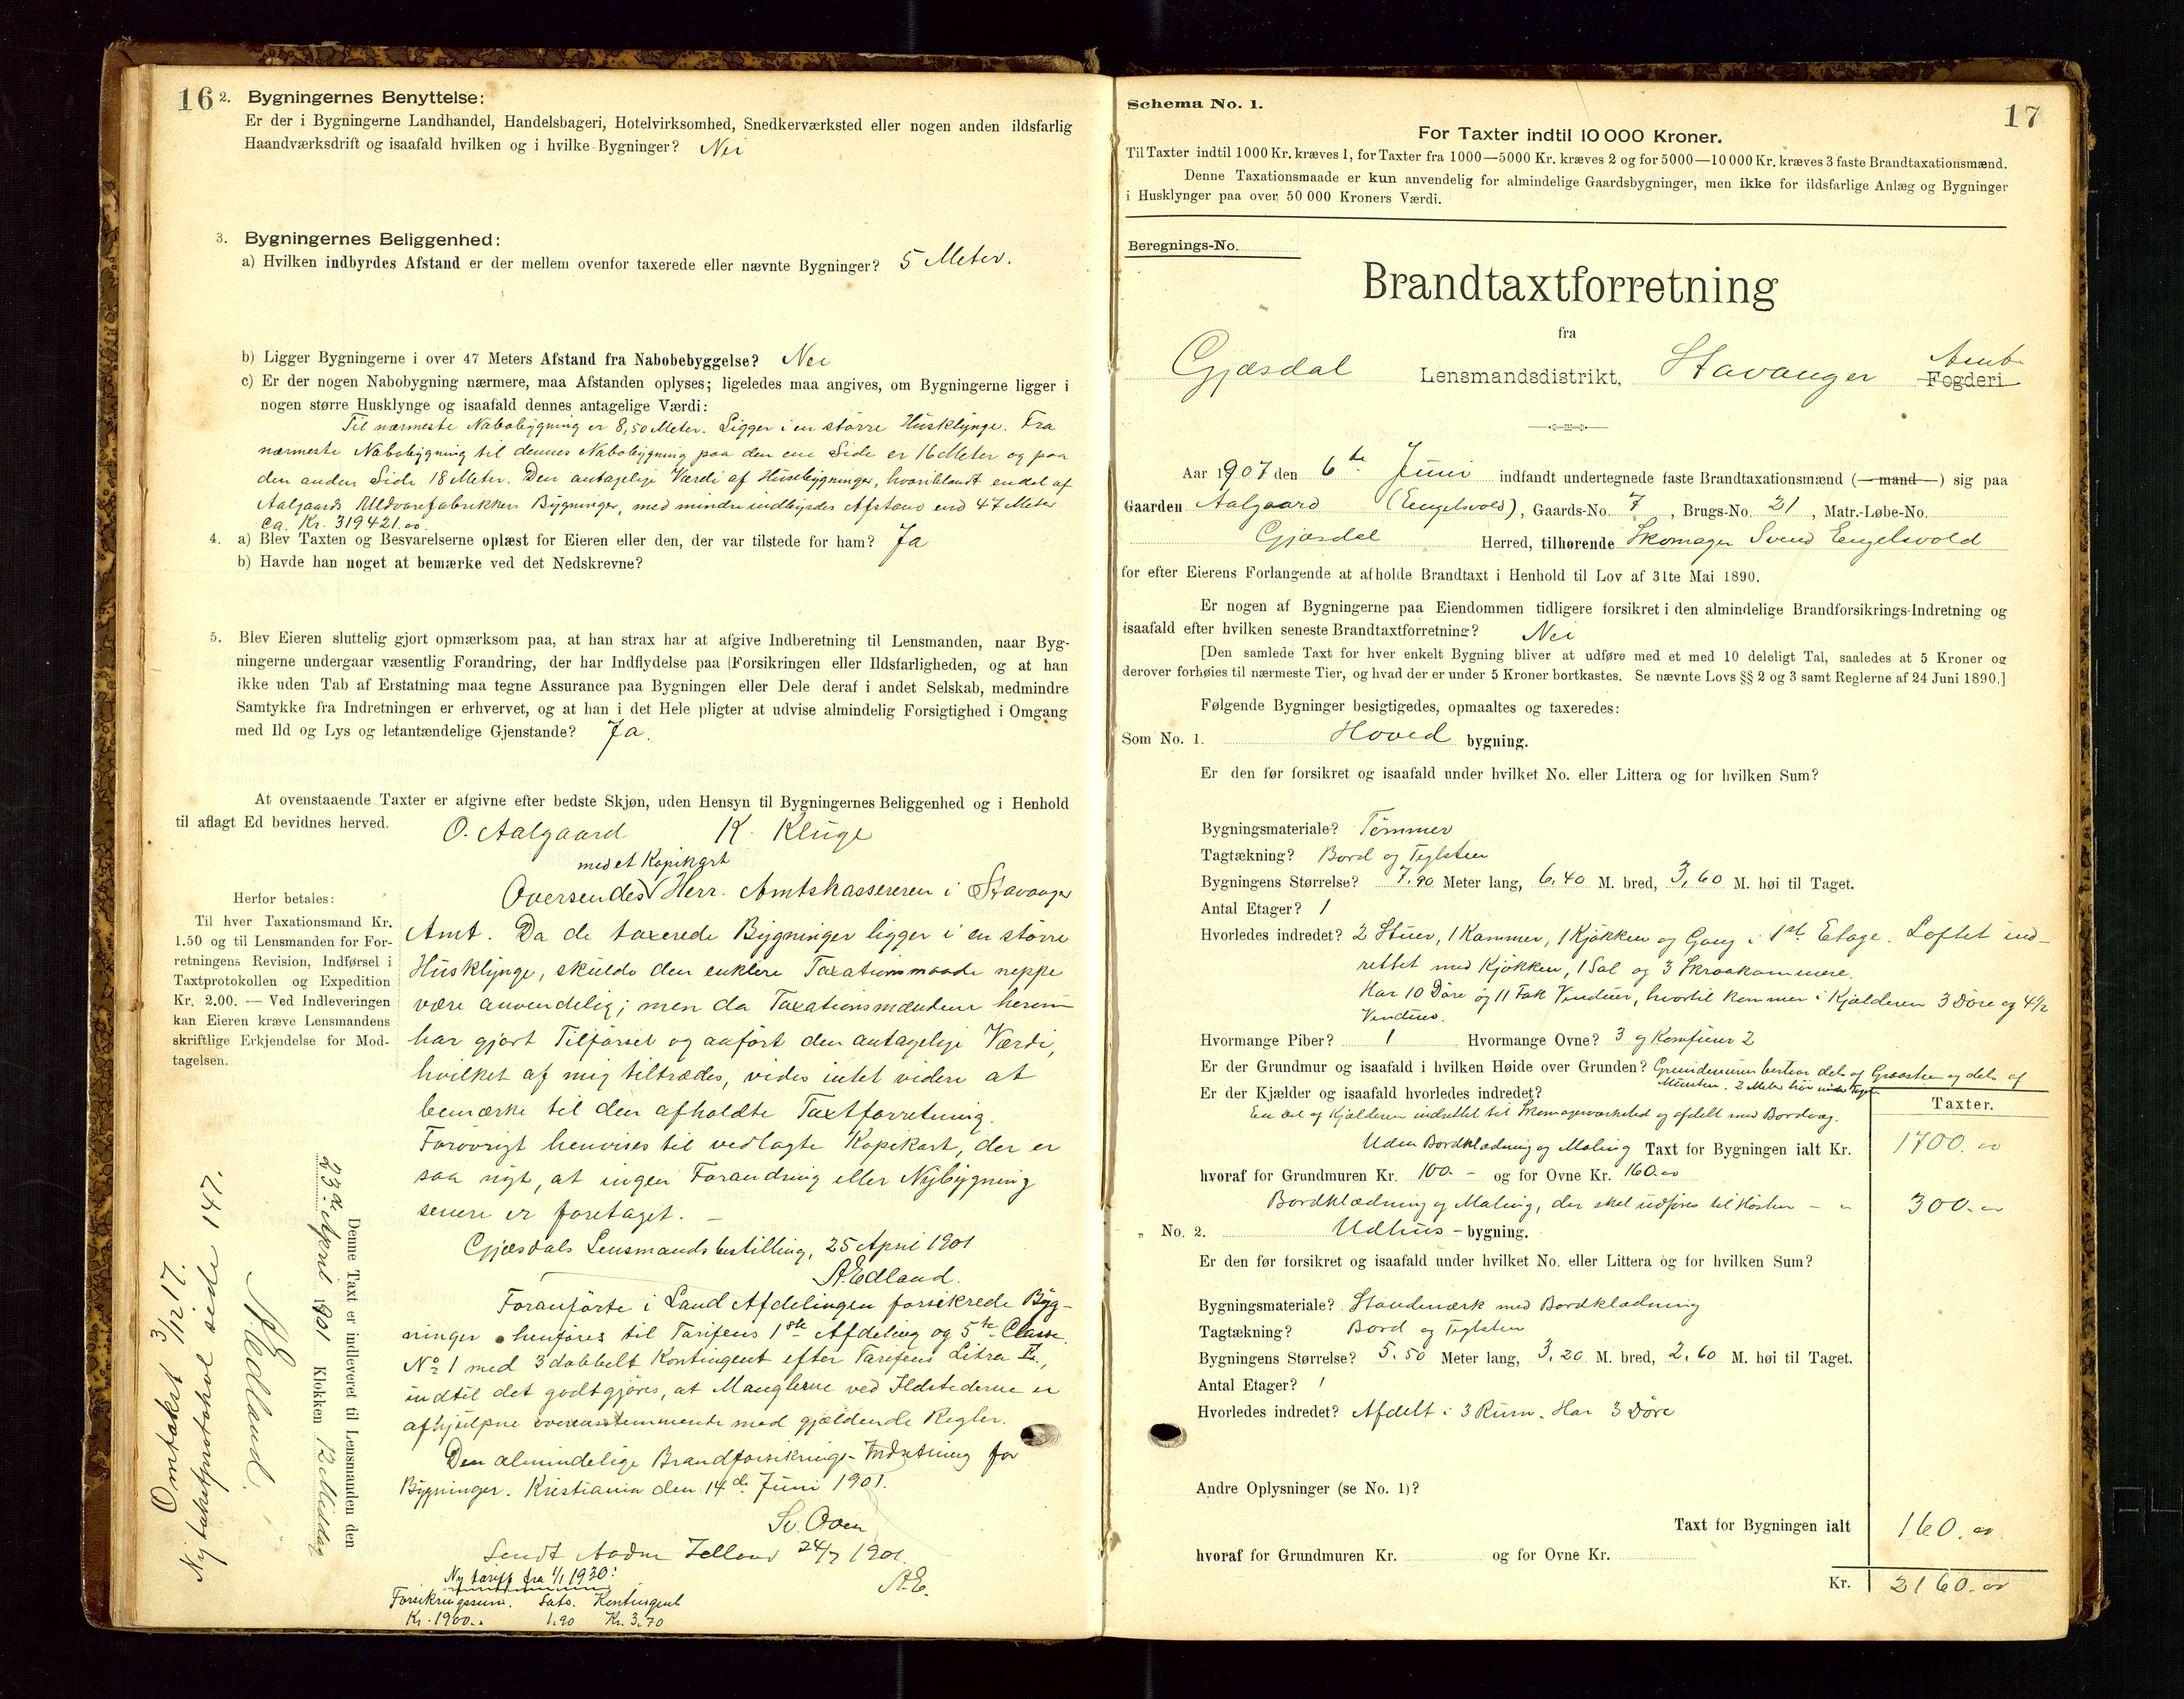 16
2. Bygningernes Benyttelse:
Er der i Bygningerne Landhandel, Handelsbageri, Hotelvirksomhed, Snedkerværksted eller nogen anden ildsfarlig
Haandværksdrift og isaafald hvilken og i hvilke Bygninger? Nei
3. Bygningernes Beliggenhed:
a) Hvilken indbyrdes Afstand er der mellem ovenfor taxerede eller nævnte Bygninger? 5 Meter.
b) Ligger Bygningerne i over 47 Meters Afstand fra Nabobebyggelse? Nei
c) Er der nogen Nabobygning nærmere, maa Afstanden oplyses; ligeledes maa angives, om Bygningerne ligger i
nogen større Husklynge og isaafald dennes antagelige Værdi:
Til nærmeste Nabobygning er 8,50 Meter. Ligger i en større Husklynge. Fra
nærmeste Nabobygning til dennes Nabobygning paa den ene Side er 16 Meter og paa
den anden Side 18 Meter. Den antagelige Værdi af Husebygninger, hvoriblandt endel af
Aalgaards Uldvarefabrikkers Bygninger, med mindre indbyrdes Afstand end 47 Meter
Ca. Kr. 319421.00.
4. a) Blev Taxten og Besvarelserne oplæst for Eieren eller den, der var tilstede for ham? Ja
b) Havde han noget at bemærke ved det Nedskrevne?
5. Blev Eieren sluttelig gjort opmærksom paa, at han strax har at afgive Indberetning til Lensmanden, naar Byg-
ningerne undergaar væsentlig Forandring, der har Indflydelse paa Forsikringen eller Ildsfarligheden, og at han
ikke uden Tab af Erstatning maa tegne Assurance paa Bygningen eller Dele deraf i andet Selskab, medmindre
Samtykke fra Indretningen er erhvervet, og at han i det Hele pligter at udvise almindelig Forsigtighed i Omgang
med Ild og Lys og letantændelige Gjenstande? Ja.
At ovenstaaende Taxter er afgivne efter bedste Skjøn, uden Hensyn til Bygningernes Beliggenhed og i Henhold
til aflagt Ed bevidnes herved.
O. Aalgaard K. Kluge
med et Kopikart
Oversendes Herr. Amtskassereren i Stavanger
Amt. Da de taxerede Bygninger ligger i en større
Husklynge, skulde den enklere Taxationsmaade neppe
være anvendelig; men da Taxationsmændene herom
har gjort Tilførsel og anført den antagelige Værdi,
hvilket af mig tiltrædes, vides intet videre at
bemærke til den afholdte Taxtforretning.
Forøvrigt henvises til vedlagte Kopikart, der er
saa nyt, at ingen Forandring eller Nybygning
senere er foretaget. –
Gjæsdals Lensmandsbestilling, 25 April 1901
A. Edland.
Foranførte i Land Afdelingen forsikrede Byg-
ninger henføres til Tarifens 1ste Afdeling og 5te Classe
No 1 med 3dobbelt Kontingent efter Tarifens Litra E.,
indtil det godtgjøres, at Manglerne ved Ildstederne er
afhjulpne overensstemmende med gjældende Regler.
Den almindelige Brandforsikrings-Indretning for
Bygninger. Kristiania den 14de Juni 1901.
Sendt 24/7 1901.
A.E.
Ny tariff fra 1/1 1930:
Forsikringssum. Sats. Kontingent
Kr. 1900.. 1.90 Kr. 3.70
Herfor betales:
Til hver Taxationsmand Kr.
1.50 og til Lensmanden for For-
retningens Revision, Indførsel i
Taxtprotokollen og Expedition
Kr. 2.00. — Ved Indleveringen
kan Eieren kræve Lensmandens
skriftlige Erkjendelse for Mod-
tagelsen.
Denne Taxt er indleveret til Lensmanden den
23de April 1901 Klokken 12 Middag
A. Edland.
Omtakst 3/12 17.
Ny takstprotokol side 147.
17
Schema No. 1.
For Taxter indtil 10 000 Kroner.
Til Taxter indtil 1000 Kr. kræves 1, for Taxter fra 1000—5000 Kr. kræves 2 og for 5000—10 000 Kr. kræves 3 faste Brandtaxationsmænd.
Denne Taxationsmaade er kun anvendelig for almindelige Gaardsbygninger, men ikke for ildsfarlige Anlæg og Bygninger
i Husklynger paa over 50 000 Kroners Værdi.
Beregnings-No.
Brandtaxtforretning
fra
Gjæsdal Lensmandsdistrikt, Stavanger Amt
Fogderi
Aar 1907 den 6te Juni indfandt undertegnede faste Brandtaxationsmænd (mand) sig paa
Gaarden Aalgaard (Engelsvold), Gaards-No. 7, Brugs-No. 21, Matr.-Løbe-No.
Gjæsdal Herred, tilhørende Skomager Svend Engelsvold
for efter Eierens Forlangende at afholde Brandtaxt i Henhold til Lov af 31te Mai 1890.
Er nogen af Bygningerne paa Eiendommen tidligere forsikret i den almindelige Brandforsikrings-Indretning og
isaafald efter hvilken seneste Brandtaxtforretning? Nei
[Den samlede Taxt for hver enkelt Bygning bliver at udføre med et med 10 deleligt Tal, saaledes at 5 Kroner og
derover forhøies til nærmeste Tier, og hvad der er under 5 Kroner bortkastes. Se nævnte Lovs §§ 2 og 3 samt Reglerne af 24 Juni 1890.]
Følgende Bygninger besigtigedes, opmaaltes og taxeredes:
Som No. 1. Hoved bygning.
Er den før forsikret og isaafald under hvilket No. eller Littera og for hvilken Sum?
Bygningsmateriale? Tømmer
Tagtækning? Bord og Teglsten
Bygningens Størrelse? 7.90 Meter lang, 6,40 M. bred, 3,60 M. høi til Taget.
Antal Etager? 1
Hvorledes indredet? 2 Stuer, 1 Kammer, 1 Kjøkken og Gang i 1ste Etage. Loftet ind-
rettet med Kjøkken, 1 Sal og 3 Skraakammere.
Har 10 Døre og 11 Fak Vinduer, hvortil kommer i Kjælderen 3 Døre og 4½
Vindues.
Hvormange Piber? 1 Hvormange Ovne? 3 og Komfurer 2
Er der Grundmur og isaafald i hvilken Høide over Grunden? Grundmuren bestaar dels af Graasten og dels af
Mursten. 2 Meter høi
Er der Kjælder og isaafald hvorledes indredet?
En Del af Kjælderen indrettet til Skomagerværksted og afdelt med Bordvæg.
Taxter.
Uden Bordklædning og Maling Taxt for Bygningen ialt Kr. 1700.00
hvoraf for Grundmuren Kr. 100.- og for Ovne Kr. 160.00
Bordklædning og Maling, der skal udføres til Høsten - " 300.00
" No. 2. Udhus - bygning.
Er den før forsikret og isaafald under hvilket No. eller Littera og for hvilken Sum?
Bygningsmateriale? Standerværk med Bordklædning
Tagtækning? Bord og Teglsten
Bygningens Størrelse? 5.50 Meter lang, 3,20 M. bred, 2,60 M. høi til Taget.
Antal Etager? 1
Hvorledes indredet? Afdelt i 3 Rum. Har 3 Døre
Andre Oplysninger (se No. 1)?
Taxt for Bygningen ialt 160.00
hvoraf for Grundmuren Kr. og for Ovne Kr.
Kr. 2160.00